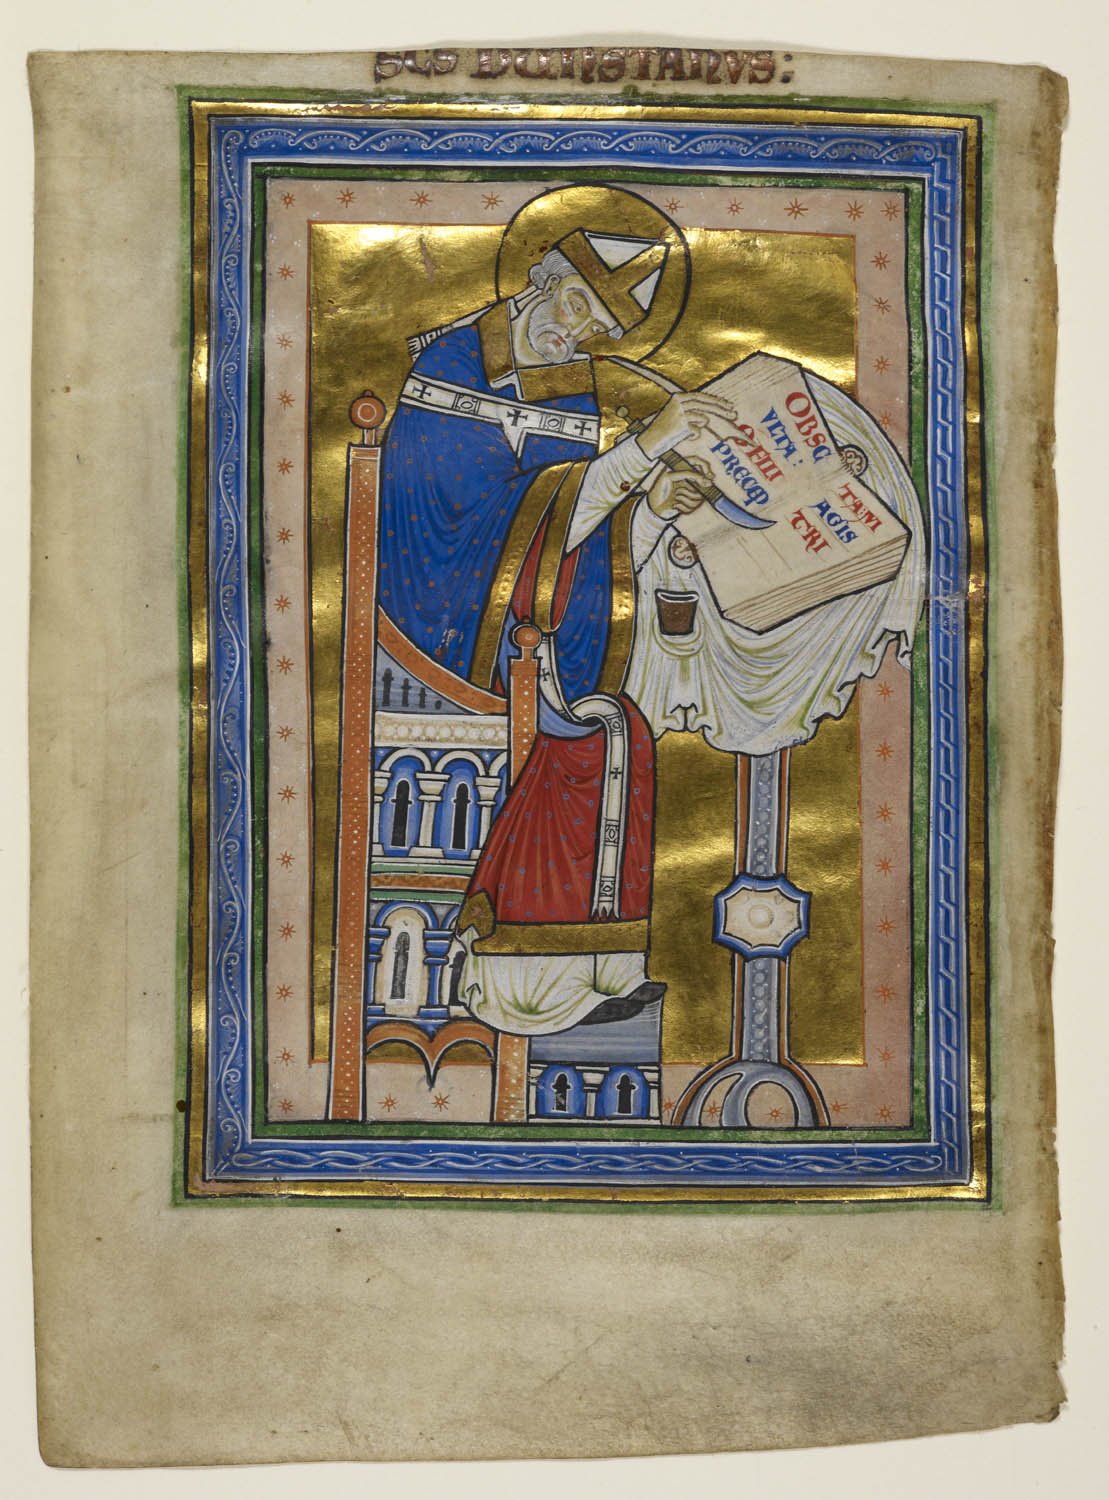 SCS DUNSTANVS:
OBSC
VLTA:
O FILI
PRECEP
TA:M
AGIS
TRI